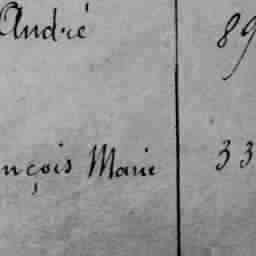 André 89
nçois Marie 33